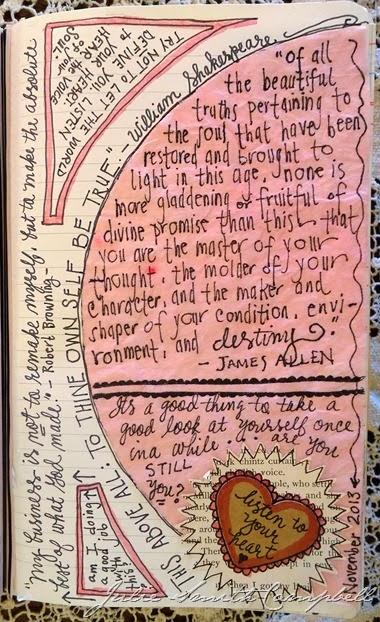 TRY NOT TO LET THE WORLD
DEFINE YOU. LISTEN
TO YOUR HEART.
HEAR THE VOICE
OF YOUR
SOUL
"of all
the beautiful
truths pertaining to
the soul that have been
restored and brought to
light in this age, none is
more gladdening or fruitful of
divine promise than this - that
you are the master of your
thought, the molder of your
character, and the maker and
shaper of your condition, envi-
ronment, and destiny."
- JAMES ALLEN
It's a good thing to take a
good look at yourself once
in a while... are you
STILL
you?
THIS ABOVE ALL: TO THINE OWN SELF BE TRUE." - William Shakespeare
"My business is not to remake myself, but to make the absolute
best of what God made." - Robert Browning
am I doing
a good job
with
this?
listen to
your
heart
chintz
voice.
November 2013
Julie Smith Campbell